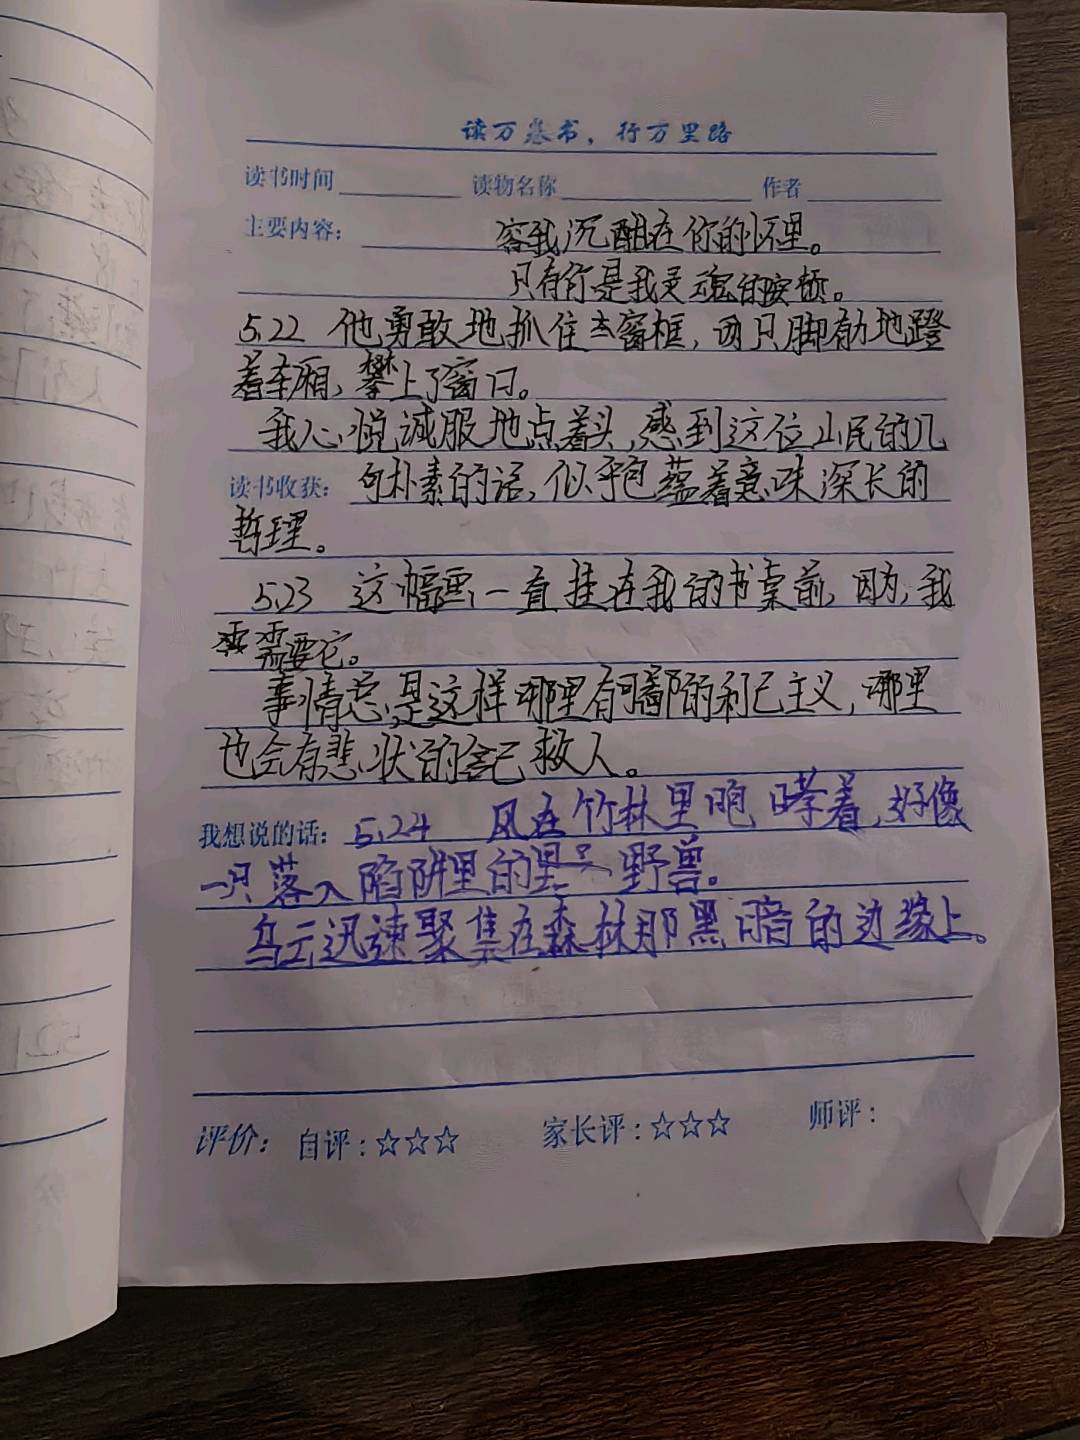 读万卷书，行万里路
读书时间 读物名称 作者
主要内容： 容我沉酣在你的怀里。
只有你是我灵魂的安顿。
5.22 他勇敢地抓住车窗框，两只脚有力地蹬
着车厢，攀上了窗口。
我心悦诚服地点着头，感到这位山民的几
读书收获： 句朴素的话，似乎包蕴着意味深长的
哲理。
5.23 这幅画，一直挂在我的书桌前，因为，我
需要它。
事情总是这样哪里有可鄙的利己主义，哪里
也会有悲状的舍己救人。
我想说的话： 5.24 风在竹林里咆哮着，好像
一只落入陷阱里的野兽。
乌云迅速聚集在森林那黑暗的边缘上。
评价： 自评：☆☆☆ 家长评：☆☆☆ 师评：
5.21